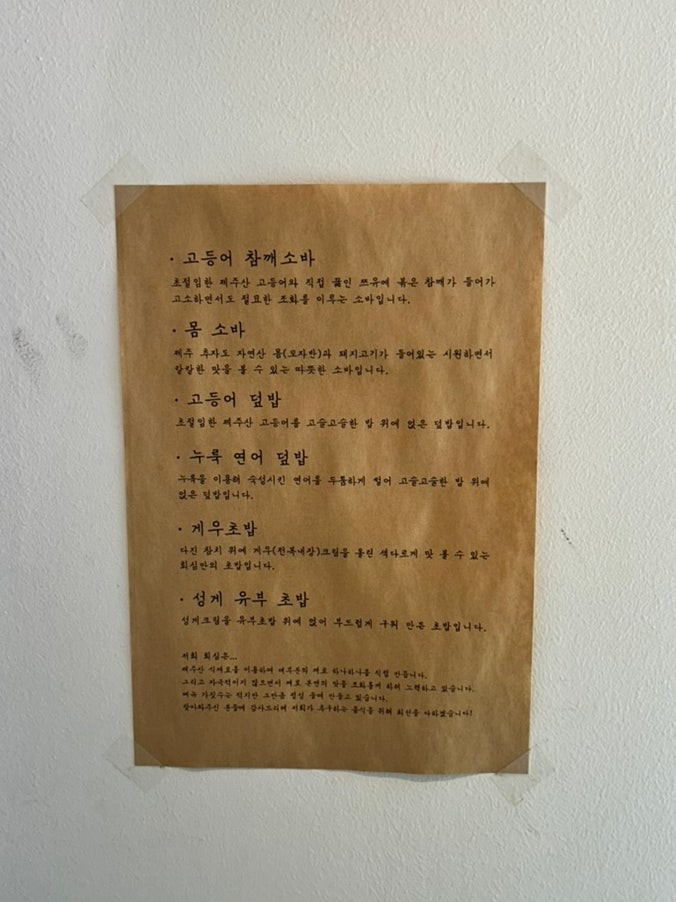 · 고등어 참깨소바
초절임한 제주산 고등어와 직접 끓인 쯔유에 볶은 참깨가 들어가
고소하면서도 절묘한 조화를 이루는 소바입니다.
· 몸 소바
제주 추자도 자연산 몸(모자반)과 돼지고기가 들어있는 시원하면서
칼칼한 맛을 볼 수 있는 따뜻한 소바입니다.
· 고등어 덮밥
초절임한 제주산 고등어를 고슬고슬한 밥 위에 얹은 덮밥입니다.
· 누룩 연어 덮밥
누룩을 이용해 숙성시킨 연어를 두툼하게 썰어 고슬고슬한 밥 위에
얹은 덮밥입니다.
· 게우초밥
다진 참치 위에 게우(전복내장)크림을 올린 색다르게 맛 볼 수 있는
회심만의 초밥입니다.
· 성게 유부 초밥
성게크림을 유부초밥 위에 얹어 부드럽게 구워 만든 초밥입니다.
저희 회심은...
제주산 식재료를 이용하여 대부분의 재료 하나하나를 직접 만듭니다.
그리고 자극적이지 않으면서 재료 본연의 맛을 조화롭게 하려 노력하고 있습니다.
메뉴 가짓수는 적지만 그만큼 정성 들여 만들고 있습니다.
찾아와주신 분들께 감사드리며 저희가 추구하는 음식을 위해 최선을 다하겠습니다!